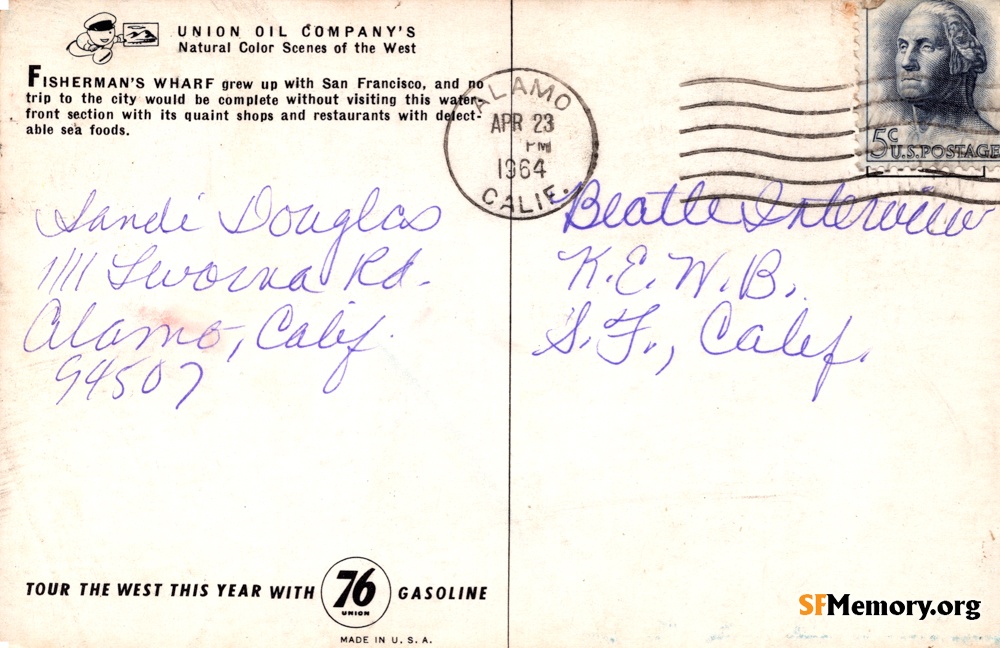 UNION OIL COMPANY'S
Natural Color Scenes of the West
FISHERMAN'S WHARF grew up with San Francisco, and no
trip to the city would be complete without visiting this water-
front section with its quaint shops and restaurants with delect-
able sea foods.
ALAMO
APR 23
PM
1964
CALIF.
5c
U.S. POSTAGE
Sandi Douglas
1111 Livorna Rd.
Alamo, Calif.
94507
Beatle Interview
K.E.W.B.
S.F., Calif.
TOUR THE WEST THIS YEAR WITH 76 UNION GASOLINE
MADE IN U.S.A.
SFMemory.org